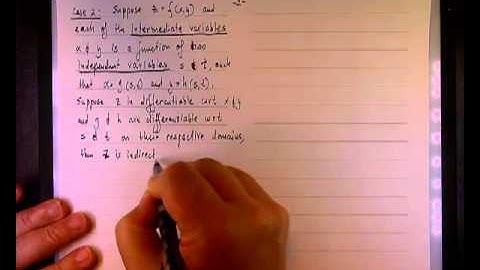 -2-
Case 2: Suppose z = f(x,y) and
each of the intermediate variables
x & y is a function of two
independent variables s & t, such
that x = g(s,t) and y = h(s,t).
Suppose z is differentiable wrt x & y
and g & h are differentiable wrt
s & t on their respective domains,
then z is indirect